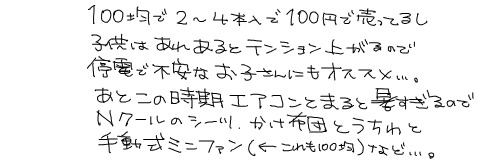 100均で2~4本入で100円で売ってるし
子供はあれあるとテンション上がるので
停電で不安なお子さんにもオススメ…。
あとこの時期エアコンとまると暑すぎるので
Nクールのシーツ、かけ布団とうちわと
手動式ミニファン(←これも100均)など…。